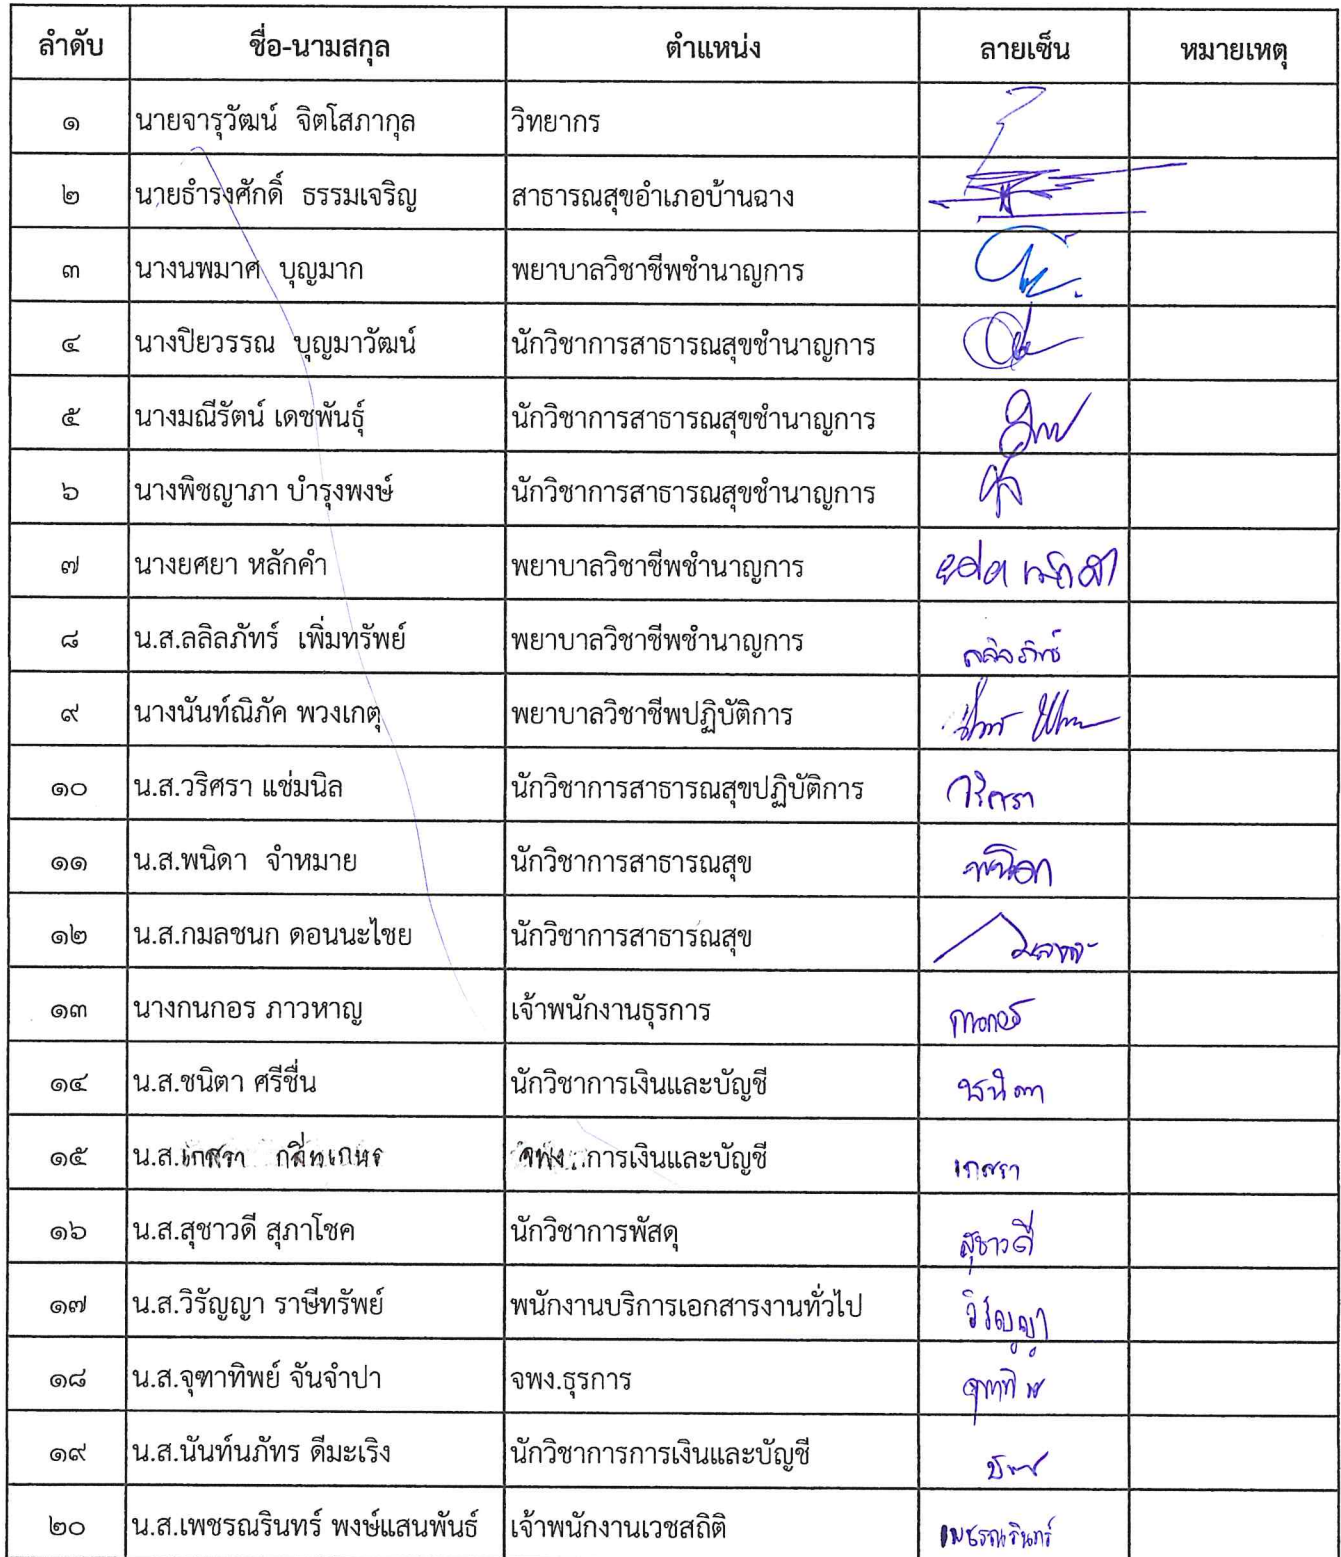 ลำดับ ชื่อ-นามสกุล ตำแหน่ง ลายเซ็น หมายเหตุ
๑ นายจารุวัฒน์ จิตโสภากุล วิทยากร
๒ นายธำรงศักดิ์ ธรรมเจริญ สาธารณสุขอำเภอบ้านฉาง
๓ นางนพมาศ บุญมาก พยาบาลวิชาชีพชำนาญการ
๔ นางปิยวรรณ บุญมาวัฒน์ นักวิชาการสาธารณสุขชำนาญการ
๕ นางมณีรัตน์ เดชพันธุ์ นักวิชาการสาธารณสุขชำนาญการ
๖ นางพิชญาภา บำรุงพงษ์ นักวิชาการสาธารณสุขชำนาญการ
๗ นางยศยา หลักคำ พยาบาลวิชาชีพชำนาญการ ยศยา หลักคำ
๘ น.ส.ลลิลภัทร์ เพิ่มทรัพย์ พยาบาลวิชาชีพชำนาญการ ลลิลภัทร์
๙ นางนันท์ณิภัค พวงเกตุ พยาบาลวิชาชีพปฏิบัติการ
๑๐ น.ส.วริศรา แช่มนิล นักวิชาการสาธารณสุขปฏิบัติการ วริศรา
๑๑ น.ส.พนิดา จำหมาย นักวิชาการสาธารณสุข พนิดา
๑๒ น.ส.กมลชนก ดอนนะไชย นักวิชาการสาธารณสุข
๑๓ นางกนกอร ภาวหาญ เจ้าพนักงานธุรการ กนกอร
๑๔ น.ส.ชนิตา ศรีชื่น นักวิชาการเงินและบัญชี ชนิตา
๑๕ น.ส.เกศรา กลิ่นเกษร จพง.การเงินและบัญชี เกศรา
๑๖ น.ส.สุชาวดี สุภาโชค นักวิชาการพัสดุ สุชาวดี
๑๗ น.ส.วิรัญญา ราษีทรัพย์ พนักงานบริการเอกสารงานทั่วไป วิรัญญา
๑๘ น.ส.จุฑาทิพย์ จันจำปา จพง.ธุรการ
๑๙ น.ส.นันท์นภัทร ดีมะเริง นักวิชาการการเงินและบัญชี
๒๐ น.ส.เพชรณรินทร์ พงษ์แสนพันธ์ เจ้าพนักงานเวชสถิติ เพชรณรินทร์